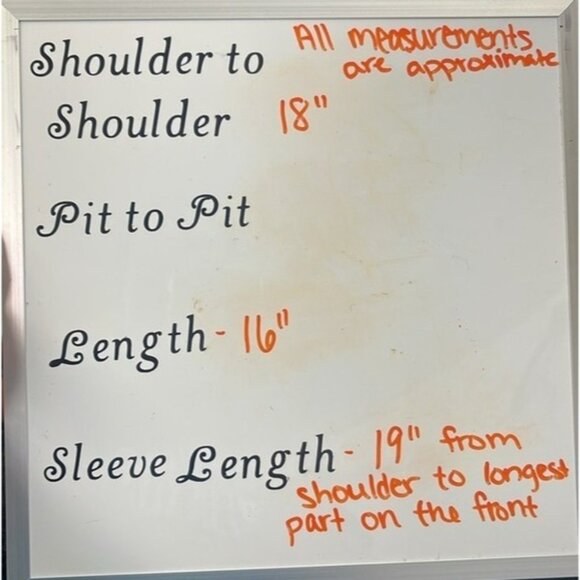 All measurements
are approximate
Shoulder to
Shoulder 18"
Pit to Pit
Length - 16"
Sleeve Length - 19" from
shoulder to longest
part on the front